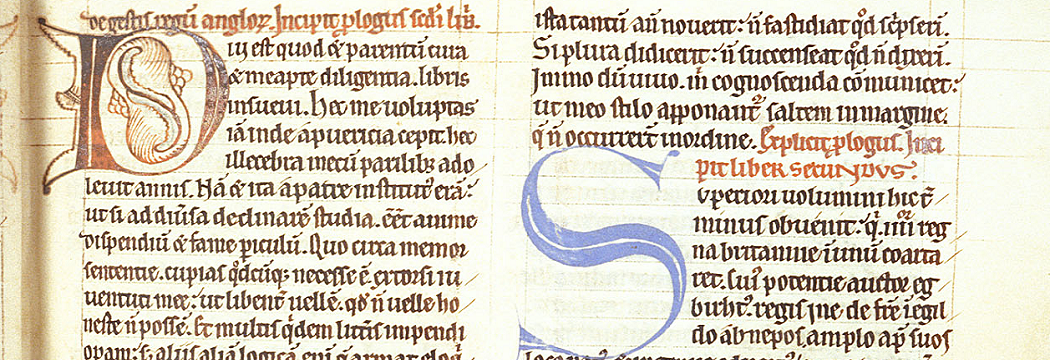 de gestis regū angloꝝ. Incipit ꝓlogus scd̄i lib̄.
Diu est quod & parentū cura
& meapte diligentia. libris
insueui. Hec me uoluptas
iā inde a puericia cepit. hec
illecebra mecū parilibꝫ ado
leuit annis. Nā & ita a patre institut᾽ erā:
ut si ad diu᾽sa declinarē studia. eēt anime
dispendiū & fame ꝑiculū. Quo circa memor
sententie. cupias qd̄cūqꝫ necesse ē. extorsi iu
uentuti mee: ut libent᾽ uellē. qd̄ n̄ uelle ho
neste n̄ possē. Et multis qͥdem litt᾽is impendi
operam: sꝫ aliis aliā. logicā eni᾽ q̄ armat eloqͥ
ista tantū aū nouerit: n̄ fastidiat qd̄ sc̄pseri.
Si plura didicerit: n̄ succenseat qd̄ n̄ dixeri.
Immo dū uiuo. m̄ cognoscenda cōmunicet:
ut meo stilo apponant᾽ saltem in margine.
q̄ n̄ occurrer̄t in ordine. Explicit ꝓlogus. Inci
pit liber secundus:
Superiori uolumini hic t᾽
minus obuenit: qͣ .iiii.or reg
na britannie ī unū coarta
ret. sui᾽ potentie auctor eg
birht᾽. regis ine de fr̄e īegil
do abnepos. amplo ap̄ suos